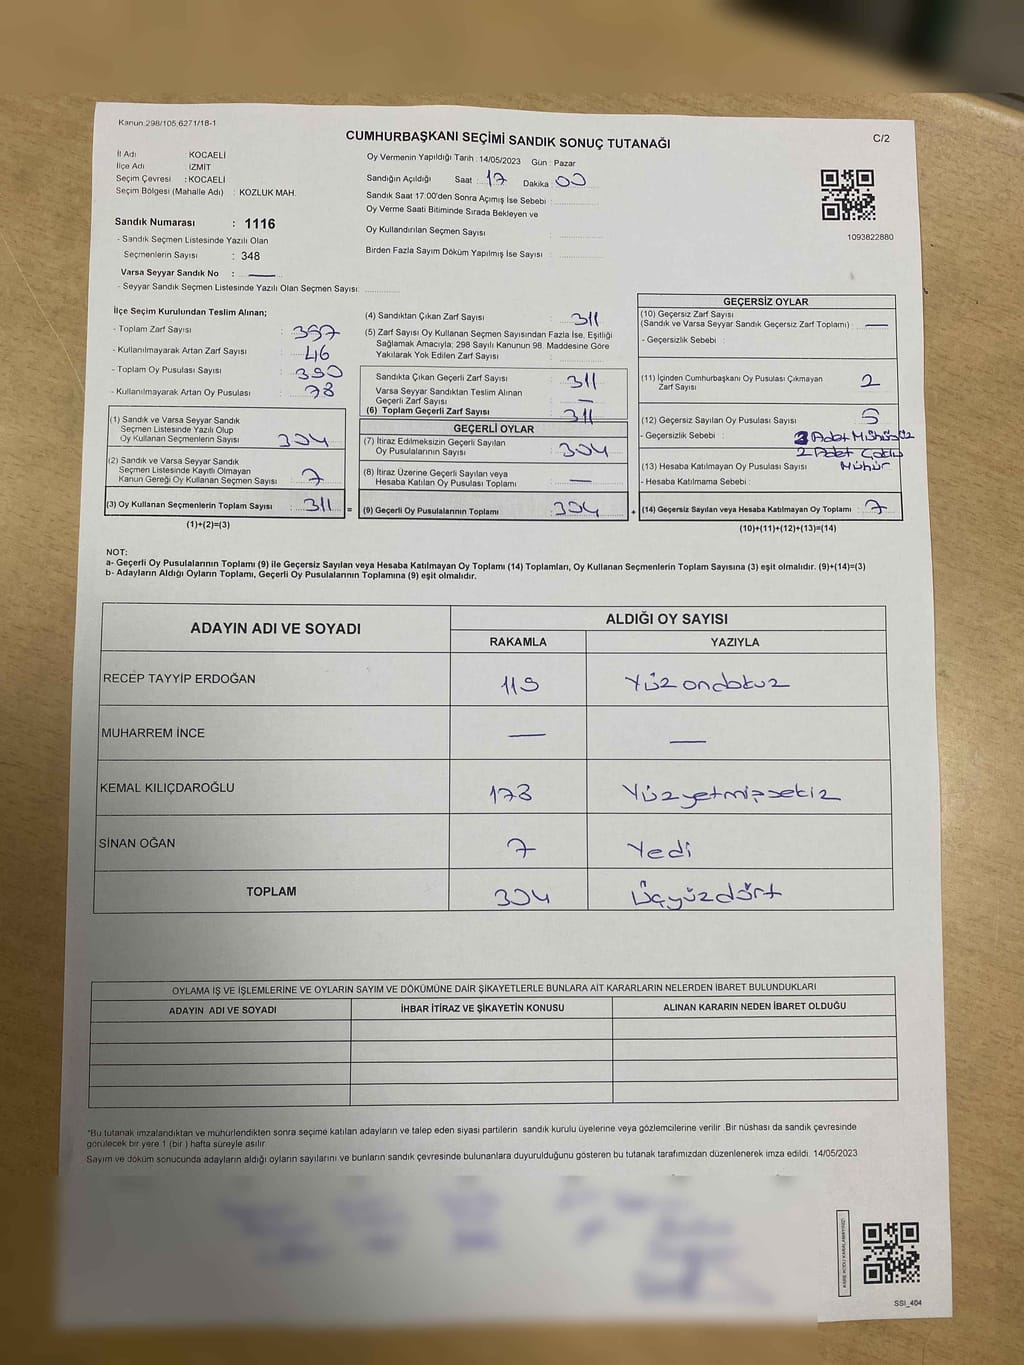 Kanun.298/105,6271/18-1
CUMHURBAŞKANI SEÇİMİ SANDIK SONUÇ TUTANAĞI
C/2
İl Adı KOCAELİ
İlçe Adı İZMİT
Seçim Çevresi : KOCAELİ
Seçim Bölgesi (Mahalle Adı) : KOZLUK MAH.
Oy Vermenin Yapıldığı Tarih : 14/05/2023 Gün : Pazar
Sandığın Açıldığı Saat 17 Dakika 00
Sandık Saat 17:00'den Sonra Açımış İse Sebebi :
Oy Verme Saati Bitiminde Sırada Bekleyen ve
Oy Kullandırılan Seçmen Sayısı :
Birden Fazla Sayım Döküm Yapılmış İse Sayısı :
1093822880
Sandık Numarası : 1116
- Sandık Seçmen Listesinde Yazılı Olan
Seçmenlerin Sayısı : 348
Varsa Seyyar Sandık No : —
- Seyyar Sandık Seçmen Listesinde Yazılı Olan Seçmen Sayısı:
İlçe Seçim Kurulundan Teslim Alınan;
- Toplam Zarf Sayısı : 357
- Kullanılmayarak Artan Zarf Sayısı : 46
- Toplam Oy Pusulası Sayısı : 390
- Kullanılmayarak Artan Oy Pusulası : 78
(1) Sandık ve Varsa Seyyar Sandık
Seçmen Listesinde Yazılı Olup
Oy Kullanan Seçmenlerin Sayısı : 304
(2) Sandık ve Varsa Seyyar Sandık
Seçmen Listesinde Kayıtlı Olmayan
Kanun Gereği Oy Kullanan Seçmen Sayısı : 7
(3) Oy Kullanan Seçmenlerin Toplam Sayısı : 311 =
(1)+(2)=(3)
(4) Sandıktan Çıkan Zarf Sayısı : 311
(5) Zarf Sayısı Oy Kullanan Seçmen Sayısından Fazla İse, Eşitliği
Sağlamak Amacıyla; 298 Sayılı Kanunun 98. Maddesine Göre
Yakılarak Yok Edilen Zarf Sayısı :
Sandıkta Çıkan Geçerli Zarf Sayısı : 311
Varsa Seyyar Sandıktan Teslim Alınan
Geçerli Zarf Sayısı : —
(6) Toplam Geçerli Zarf Sayısı : 311
GEÇERLİ OYLAR
(7) İtiraz Edilmeksizin Geçerli Sayılan
Oy Pusulalarının Sayısı : 304
(8) İtiraz Üzerine Geçerli Sayılan veya
Hesaba Katılan Oy Pusulası Toplamı : —
(9) Geçerli Oy Pusulalarının Toplamı : 304 +
GEÇERSİZ OYLAR
(10) Geçersiz Zarf Sayısı
(Sandık ve Varsa Seyyar Sandık Geçersiz Zarf Toplamı) : —
- Geçersizlik Sebebi :
(11) İçinden Cumhurbaşkanı Oy Pusulası Çıkmayan
Zarf Sayısı : 2
(12) Geçersiz Sayılan Oy Pusulası Sayısı : 5
- Geçersizlik Sebebi : 3 Adet Mühürsüz
2 Adet Çoklu
Mühür
(13) Hesaba Katılmayan Oy Pusulası Sayısı
- Hesaba Katılmama Sebebi :
(14) Geçersiz Sayılan veya Hesaba Katılmayan Oy Toplamı : 7
(10)+(11)+(12)+(13)=(14)
NOT:
a- Geçerli Oy Pusulalarının Toplamı (9) ile Geçersiz Sayılan veya Hesaba Katılmayan Oy Toplamı (14) Toplamları, Oy Kullanan Seçmenlerin Toplam Sayısına (3) eşit olmalıdır. (9)+(14)=(3)
b- Adayların Aldığı Oyların Toplamı, Geçerli Oy Pusulalarının Toplamına (9) eşit olmalıdır.
ADAYIN ADI VE SOYADI ALDIĞI OY SAYISI
RAKAMLA YAZIYLA
RECEP TAYYİP ERDOĞAN 119 Yüz ondokuz
MUHARREM İNCE — —
KEMAL KILIÇDAROĞLU 178 Yüzyetmişsekiz
SİNAN OĞAN 7 Yedi
TOPLAM 304 Üçyüzdört
OYLAMA İŞ VE İŞLEMLERİNE VE OYLARIN SAYIM VE DÖKÜMÜNE DAİR ŞİKAYETLERLE BUNLARA AİT KARARLARIN NELERDEN İBARET BULUNDUKLARI
ADAYIN ADI VE SOYADI İHBAR İTİRAZ VE ŞİKAYETİN KONUSU ALINAN KARARIN NEDEN İBARET OLDUĞU
*Bu tutanak imzalandıktan ve mühürlendikten sonra seçime katılan adayların ve talep eden siyasi partilerin sandık kurulu üyelerine veya gözlemcilerine verilir .Bir nüshası da sandık çevresinde
görülecek bir yere 1 (bir ) hafta süreyle asılır
Sayım ve döküm sonucunda adayların aldığı oyların sayılarını ve bunların sandık çevresinde bulunanlara duyurulduğunu gösteren bu tutanak tarafımızdan düzenlenerek imza edildi. 14/05/2023
KARE KODU KARALAMAYINIZ!
SSI_404